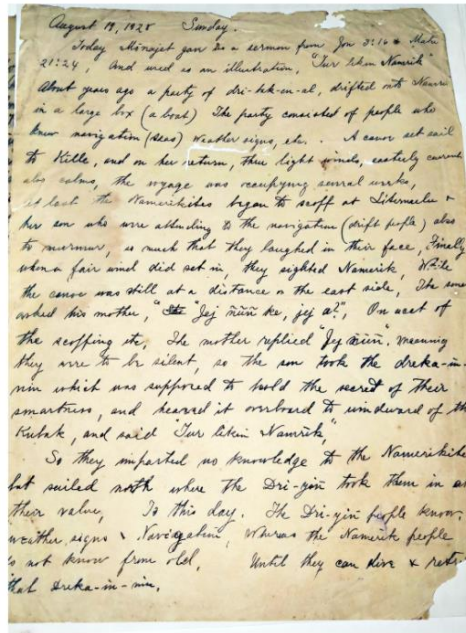 August 19, 1928 Sunday.
Today Minajet gave us a sermon from Jon 3:16 & Mate
21:24, and used as an illustration, "Tur likin Namrik
About years ago a party of dri-tek-en-al, drifted onto Namrik
in a large box (a boat) The party consisted of people who
knew navigation (seas) weather signs, etc. . A canoe set sail
to Kille, and on her return, thru light winds, easterly current
also calms, the voyage was occupying several weeks,
at last the Namerikites began to scoff at Libemelu &
her son who were attending to the navigation (drift people) also
to murmur, so much that they laughed in their face, Finally
when a fair wind did set in, they sighted Namerik, While
the canoe was still at a distance on the east side, The son
asked his mother, "Jej ñiñi ke, jej a?", On acct of
the scoffing etc, The mother replied "Jej ñiñi". meaning
they were to be silent, so the son took the dreka-in-
nin which was supposed to hold the secret of their
smartness, and heaved it overboard to windward of the
Kubak, and said "Tur likin Namrik,"
So they imparted no knowledge to the Namerikite
but sailed north where the Dri-yin took them in at
their value, To this day. The Dri-yin people know,
weather signs & Navigation, whereas the Namerik people
do not know from old, Until they can dive &
that dreka-in-nin.